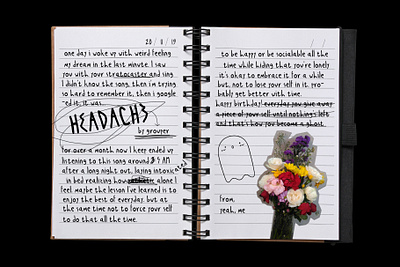 20 / 8 / 19
one day i woke up with weird feeling
my dream in the last minute, I saw
you with your stratocaster and sing
I didn't know the song, then i'm trying
so hard to remember it, then i google
-ed it, it was..
HEADACHE
by grouper
for over a month now I keep ended up
listening to this song around 3-4 AM
after a long night out, laying intoxicated
in bed realizing how alone I
feel. maybe the lesson I've learned is to
enjoy the best of everyday, but at
the same time not to force your self
to do that all the time.
to be happy or be socialable all the
time while hiding that you're lonely
it's okay to embrace it for a while
but, not to lose your self in it, pro-
bably get better with time.
happy birthday! everyday you give away
a piece of your self until nothing's left
and that's how you become a ghost.
from,
yeah, me